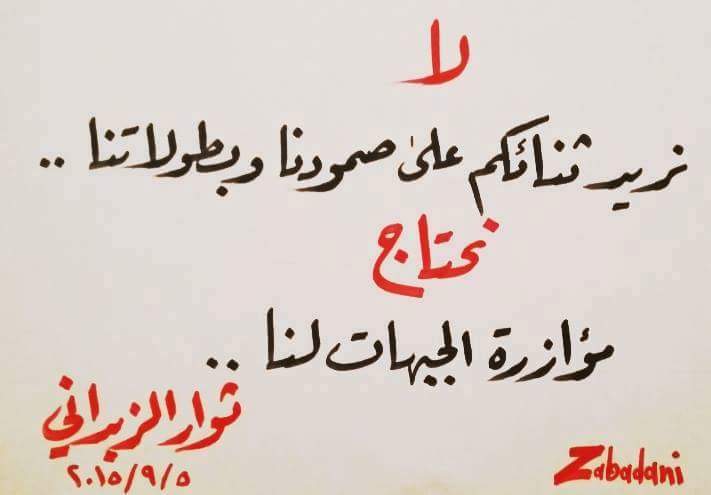 لا
نريد ثنائكم على صمودنا وبطولاتنا ..
نحتاج
مؤازرة الجبهات لنا ..
ثوار الزبداني
٢٠١٥/٩/٥
Zabadani